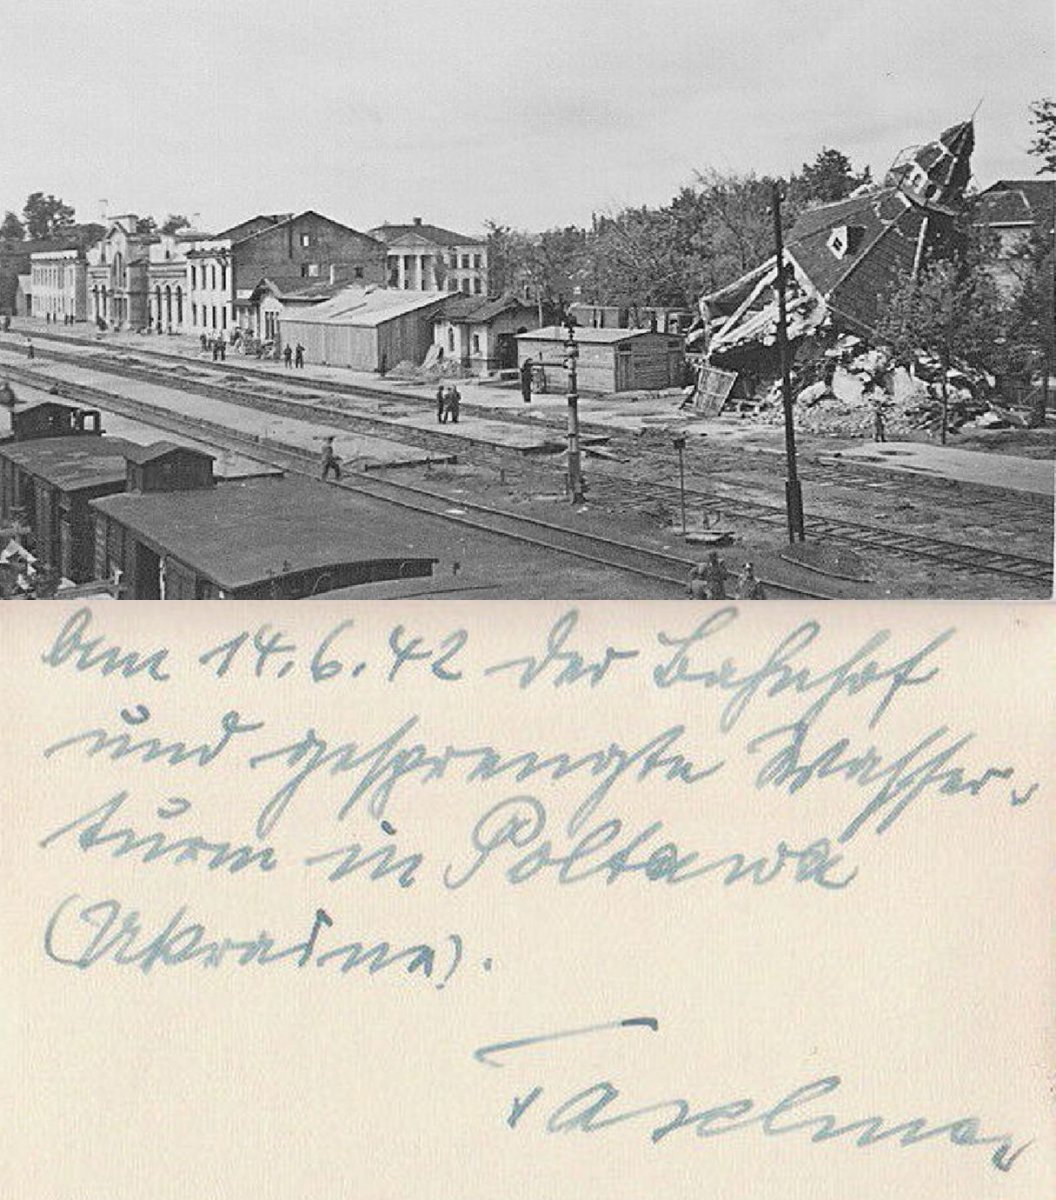 Am 14.6.42 der Bahnhof
und gesprengte Wasser-
turm in Poltawa
(Ukraine).